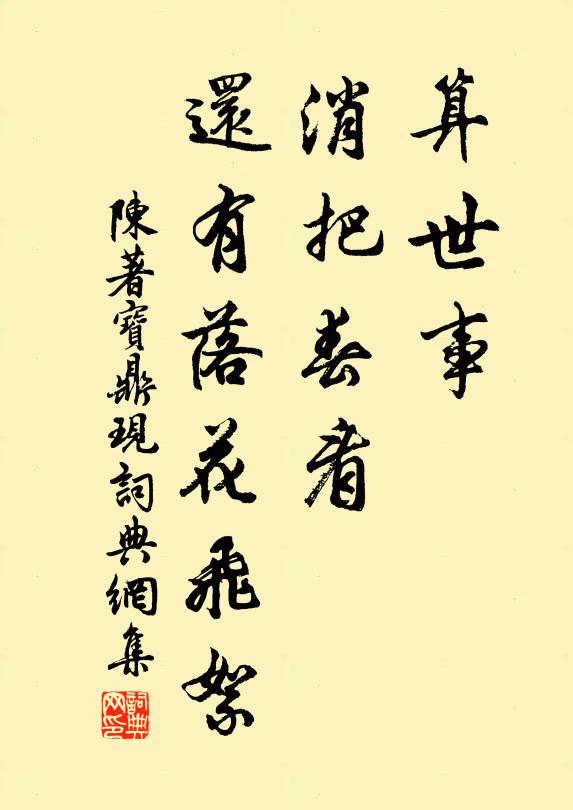 算世事
消把春看
還有落花飛絮
陳著寶鼎現詞典網集
詞典網印